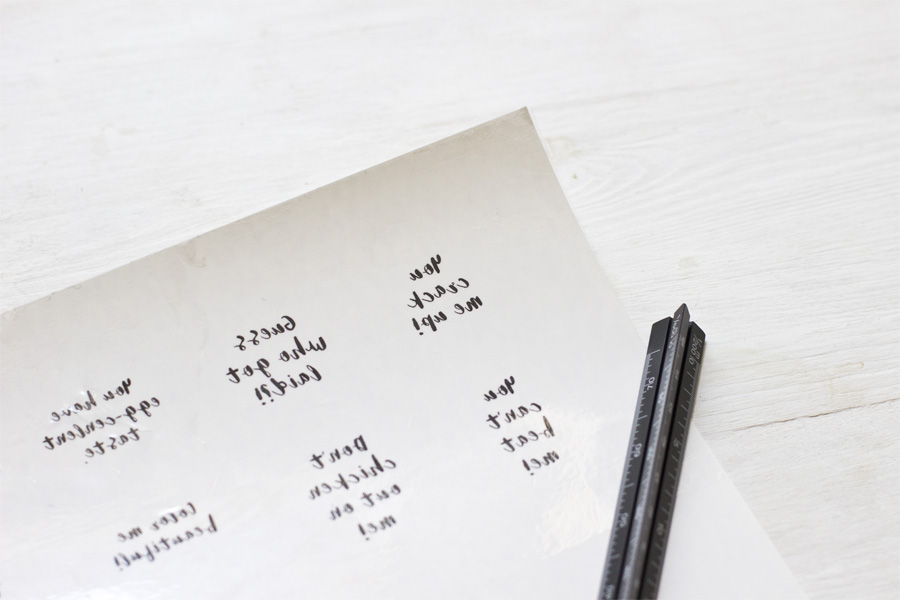 You have
egg-centent
taste.
Guess
who got
laid?!
You
crack
me up!
Color me
beautiful!
Don't
chicken
out on
me!
You
can't
beat
me!